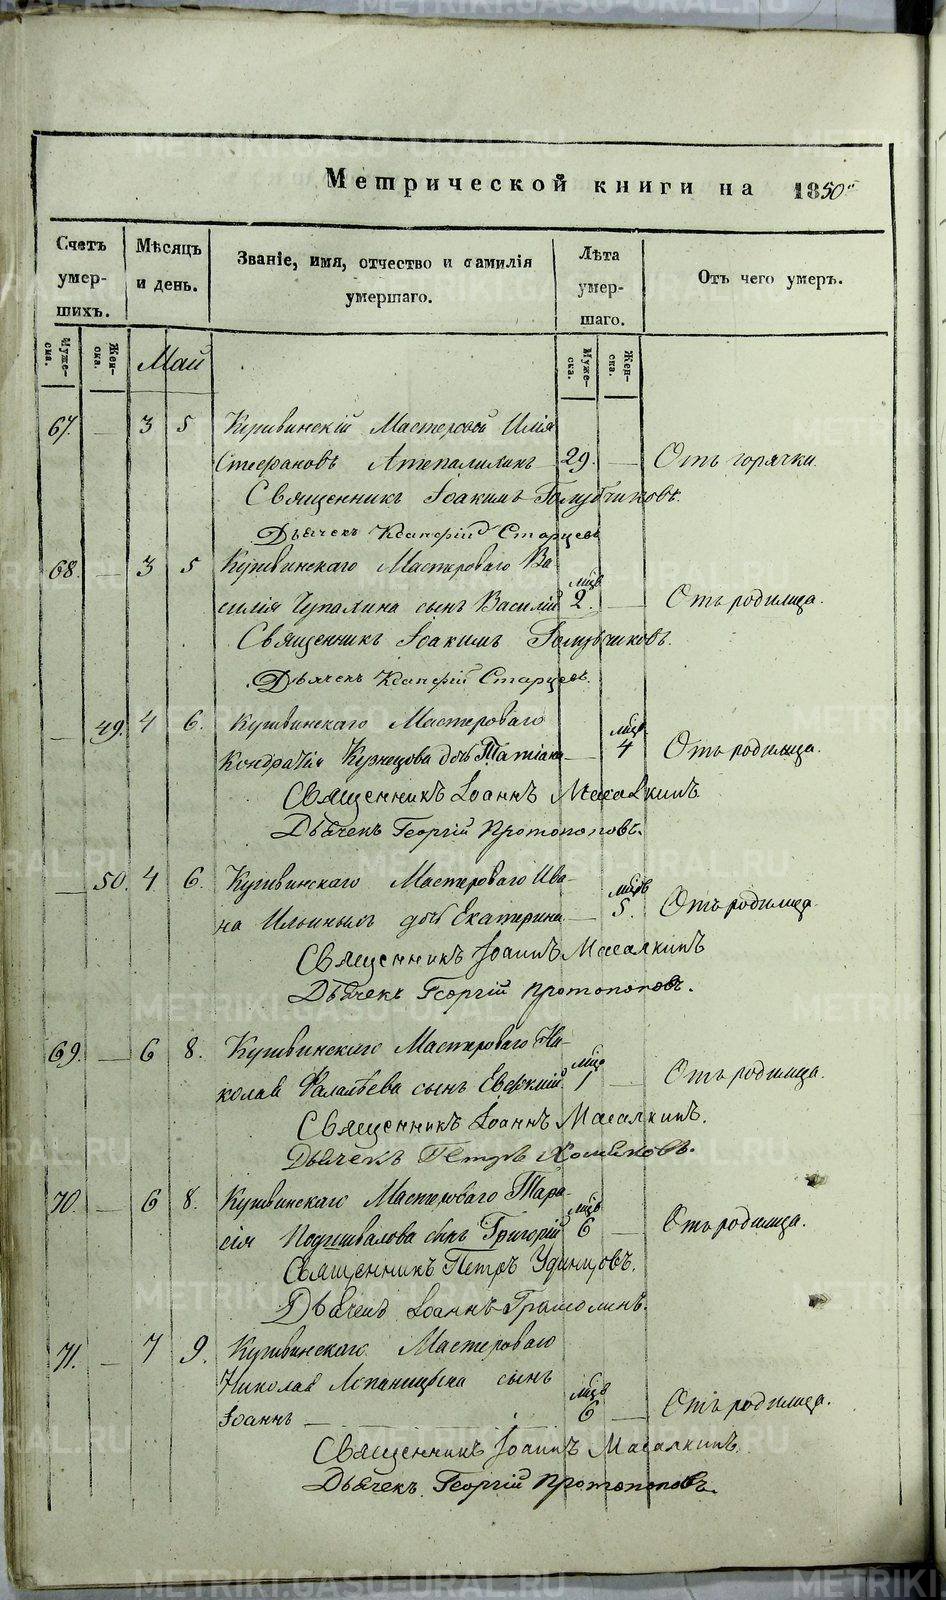 Метрической книги на 1850
Счетъ умер- шихъ.
Мѣсяцъ и день.
Званіе, имя, отчество и фамилія умершаго.
Лѣта умер- шаго.
Отъ чего умеръ.
Муже- ска. Жен- ска. Май Муже- ска. Жен- ска.
67. — 3 5 Кушвинскій Мастеровой Илія
Стефановъ 29. — Отъ горячки.
Священникъ Іоакимъ Голубчиковъ.
Дьячекъ Старцевъ
68. — 3 5 Кушвинскаго Мастероваго Ва-
силія Чупахина сынъ Василій мцв 2. — Отъ родимца.
Священникъ Іоакимъ Голубчиковъ.
Дьячекъ Старцевъ.
— 49. 4 6. Кушвинскаго Мастероваго
Кондратія Кузнецова дочь Татіана — мцв 4 Отъ родимца.
Священникъ Іоаннъ Масалкинъ
Дьячекъ Георгій Протопоповъ.
— 50. 4 6. Кушвинскаго Мастероваго Ива-
на Ильиныхъ дочь Екатерина — мцв 5. Отъ родимца.
Священникъ Іоаннъ Масалкинъ
Дьячекъ Георгій Протопоповъ.
69. — 6 8. Кушвинскаго Мастероваго Ни-
колая Фалалѣева сынъ мцв 1 — Отъ родимца.
Священникъ Іоаннъ Масалкинъ.
Дьячекъ Петръ Хомяковъ.
70. — 6 8. Кушвинскаго Мастероваго Тара-
сія Подшивалова сынъ Григорій мцв 6 — Отъ родимца.
Священникъ Петръ Удинцовъ.
Дьячекъ Іоаннъ Грамолинъ.
71. — 7 9. Кушвинскаго Мастероваго
Николая сынъ
Іоаннъ — мцв 6 — Отъ родимца.
Священникъ Іоаннъ Масалкинъ.
Дьячекъ Георгій Протопоповъ.
METRIKI.GASO-URAL.RU